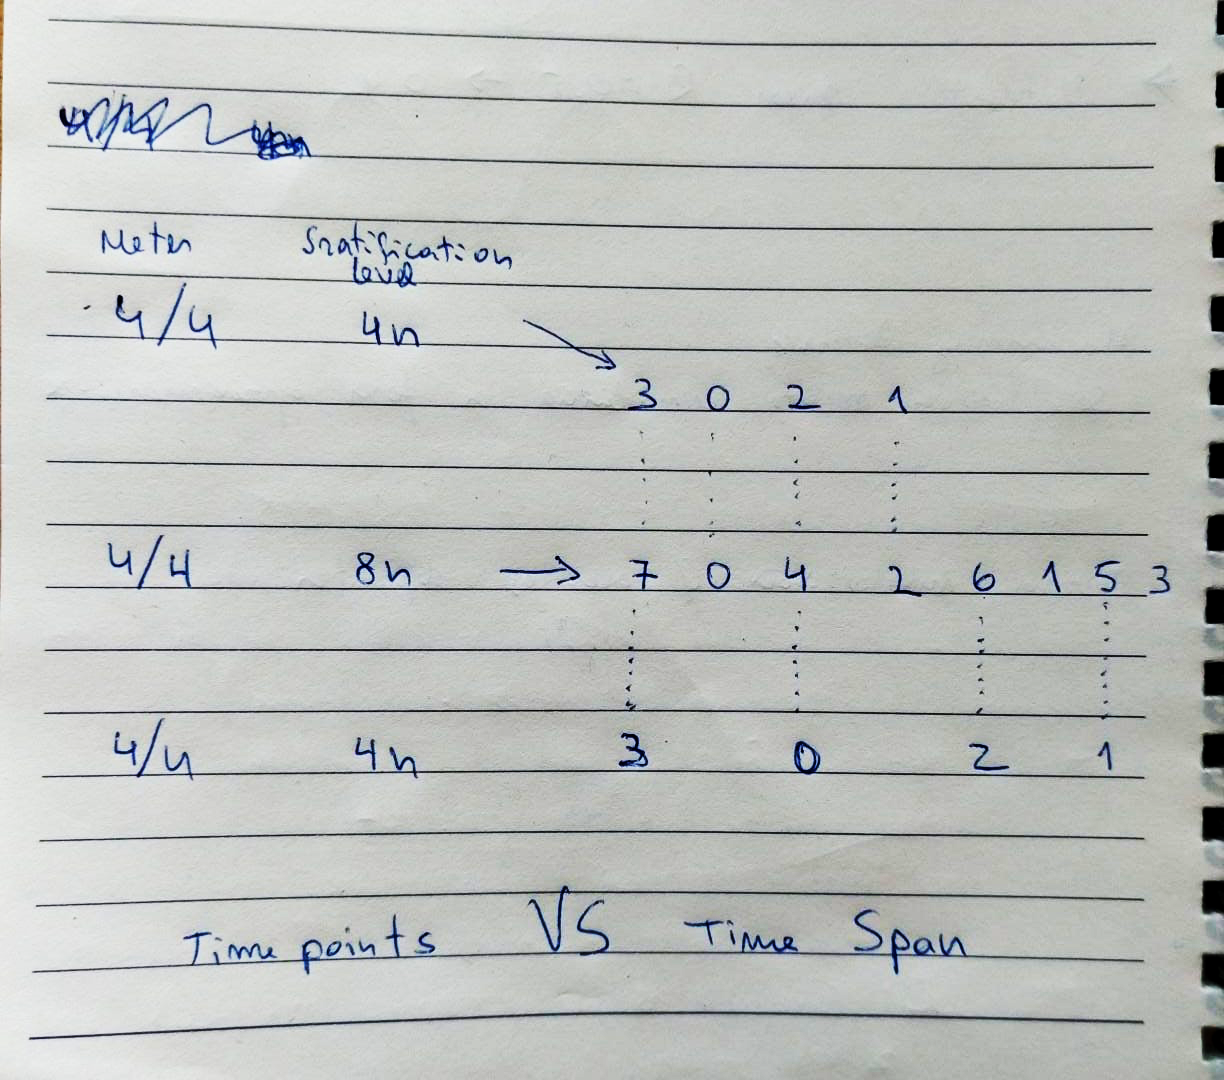 Meter Sratification
level
4/4 4n
3 0 2 1
4/4 8n → 7 0 4 2 6 1 5 3
4/4 4n 3 0 2 1
Time points VS Time Span